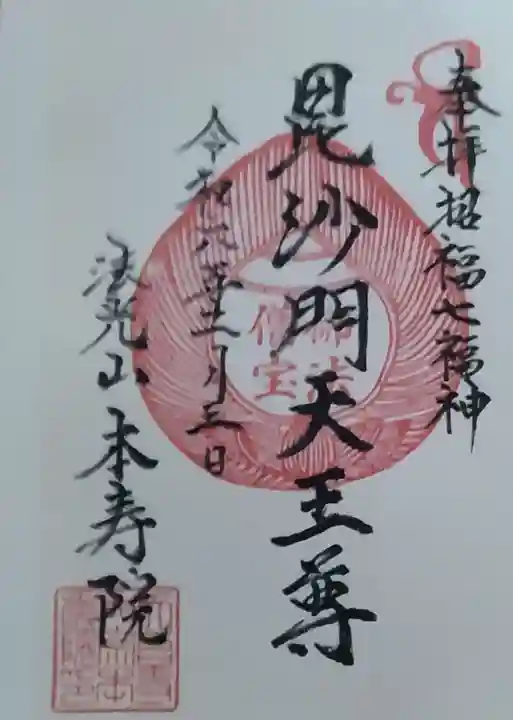 奉拝招福七福神
毘沙門天王尊
令和六年二月三日
法光山本寿院
佛法
僧宝